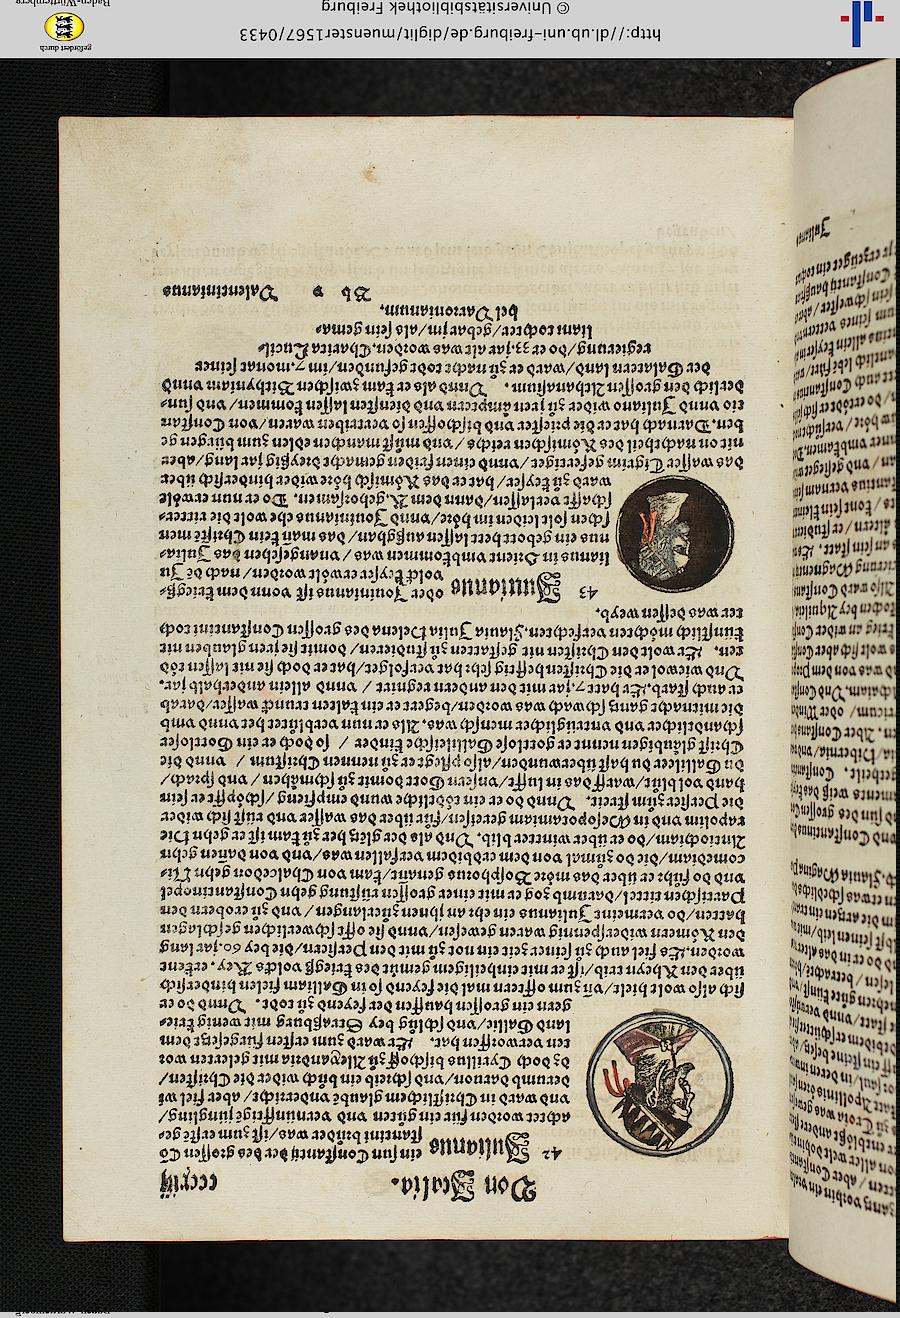 Von Italia.
ccccxiij
42 Julianus ein sun Constantij der des grossen Cō
stantini brůder was/ ist zum erste ge-
achtet worden für ein gůten vnd vernünfftige jüngling/
vnd ward in Christlichem glaubē vnderricht/ aber fiel wi
derumb daruon/ vnd schreib ein bůch wider die Christen/
dz doch Cyrillus bischoff zů Alexandria mit gelerten wor
ten verworffen hat. Er ward zum ersten fürgesetzt dem
land Gallie/ vnd schlůg bey Straßburg mit wenig krie-
gern ein grossen hauffen der feyend zů todt. Vnnd do er
sich also wolt hielt/ vñ zum offtern mal die feyend so in Galliam fielen hindersich
über den Rheyn trib/ ist er mit einhelligem gemüt des kriegß volcks Key. erkent
worden. Es fiel auch zů seiner zeit ein not zů mit den Persiern/ die bey 60. jar lang
den Römern widerspennig waren gewesen/ vnnd sie offt schwerlichen geschlagen
hatten/ do vermeint Julianus ein ehr an jhnen zůerlangen/ vnd zů erobern den
Parthischen tittel/ darumb zog er mit einer grossen rüstung gehn Constantinopel
vnd do fůhr er über das more Bosphorus genant/ kam von Chalcedon gehn Ni-
comediam/ die do zůmal von dem erdbidem verfallen was/ vnd von dañen gehn
Antiochiam/ do er über winter bleib. Vnd als der glētz her zů kam ist er gehn Hie
rapolim vnd in Mesopotamiam gereiset/ für über das wasser vnd rüst sich wider
die Persier zům streit. Vnnd do er ein tödtliche wund empfieng/ schöpffet er sein
hand vol blůt/ warff das in lufft/ vnsern Gott domit zů schmähen/ vnd sprach/
du Galileer du hast überwunden/ also pfleget er zů nennen Christum / vnnd die
Christ gläubigen nennet er gottlose Galileische kinder / so doch er ein Gottloser
schandtlicher vnd vntrüglicher mensch was. Als er nun verblůtet het vnnd vmb
die mitnacht gantz schwach was worden/ begert er ein kalten trunck wasser/ darab
er auch starb. Er hatt 7. jar mit den andern regniert / vnnd allein anderthalb jar.
Vnd wiewol er die Christen hefftig sehr hat verfolget/ hat er doch sie nit lassen töd
ten. Er wolt den Christen nit gestatten zů studieren/ domit sie jren glauben nit
künstlich möchten verfechten. Flauia Julia Helena des grossen Constantini toch
ter was dessen weyb.
43 Jouinianus oder Jouinianus ist vonn dem kriegß-
volck keyser erwölt worden/ nach dē Ju
lianus in Orient vmbkommen was / vnangesehen das Julia-
nus ein gebott hett lassen außgahn/ das man kein Christē men
schen solt leiden im hôre/ vnnd Jouinianus ehe wolt die ritter-
schafft verlassen/ dann dem K. gehorsamen. Do er nun erwölt
ward zů keyser/ hatt er das Römisch höre wider hindersich über
das wasser Tigrim gefertiget/ vnnd einen friden gemacht dreyßig jar lang/ aber
nit on nachtheil des Römischen reichs / vnd můst manchen edlen zum bürgen ge
ben. Darnach hat er die priester vnd bischoffen so vertriben waren/ von Constan
tio vnnd Juliano wider zů jren ämptern vnd diensten lassen kommen/ vnd sun-
derlich den grossen Athanasium. Vnnd als er kam zwischen Bithyniam vnnd
der Galatern land/ ward er zů nacht todt gefunden/ im 7. monat seines
regierung/ do er 33. jar alt was worden. Charita Lucil-
liam tochter/ gebar jm/ als sein gema-
hel Varronianum.
Bb v
Valentinianus
http://dl.ub.uni-freiburg.de/diglit/muenster1567/0433
© Universitätsbibliothek Freiburg
gefördert durch